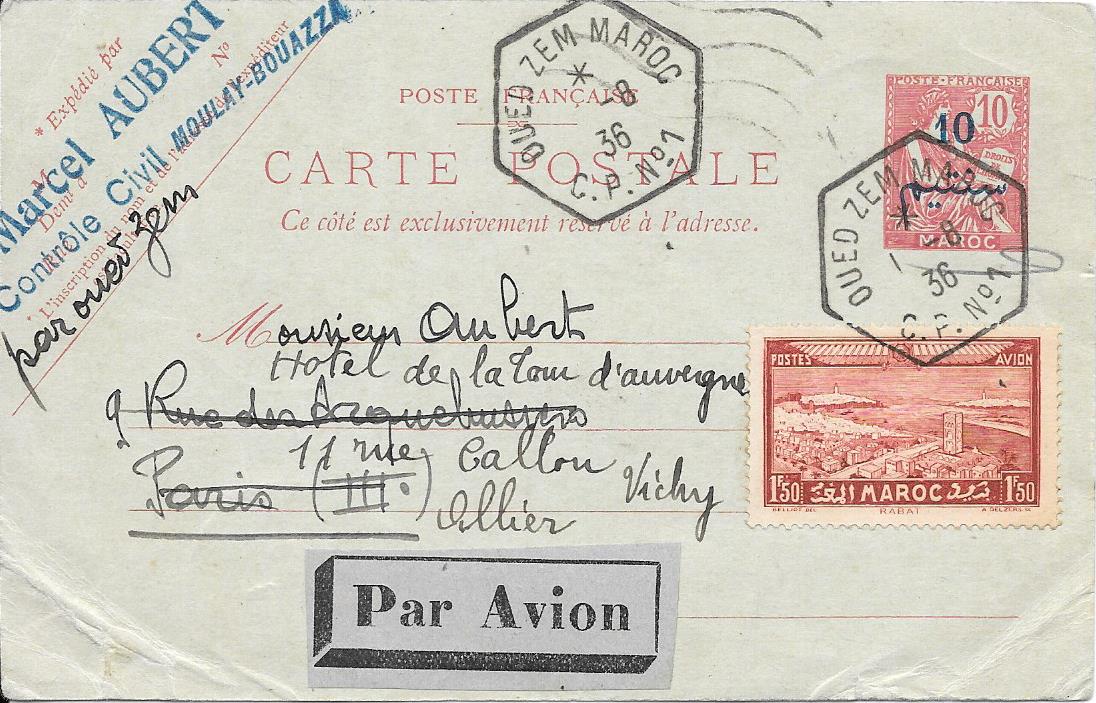 * Expédié par
Marcel AUBERT
Contrôle Civil MOULAY-BOUAZZA
par oued zem
M
Dem^t à
N°
L'inscription du nom et de l'adresse de l'expéditeur
OUED ZEM MAROC
*
-8
36
C.P. N° 1
POSTE FRANÇAISE
CARTE POSTALE
Ce côté est exclusivement réservé à l'adresse.
POSTE·FRANÇAISE
10
10
DROITS DE
سنتيم
MAROC
OUED ZEM MAROC
*
1 -8
36
C.P. N° 1
Monsieur Aubert
Hotel de la Tour d'auvergne
9 Rue des Arquebusiers
11 rue Callou Vichy
Paris (III.)
Allier
POSTES AVION
1F50 MAROC 1F50
BELLIOT DEL. RABAT A. DELZERS. SC.
Par Avion